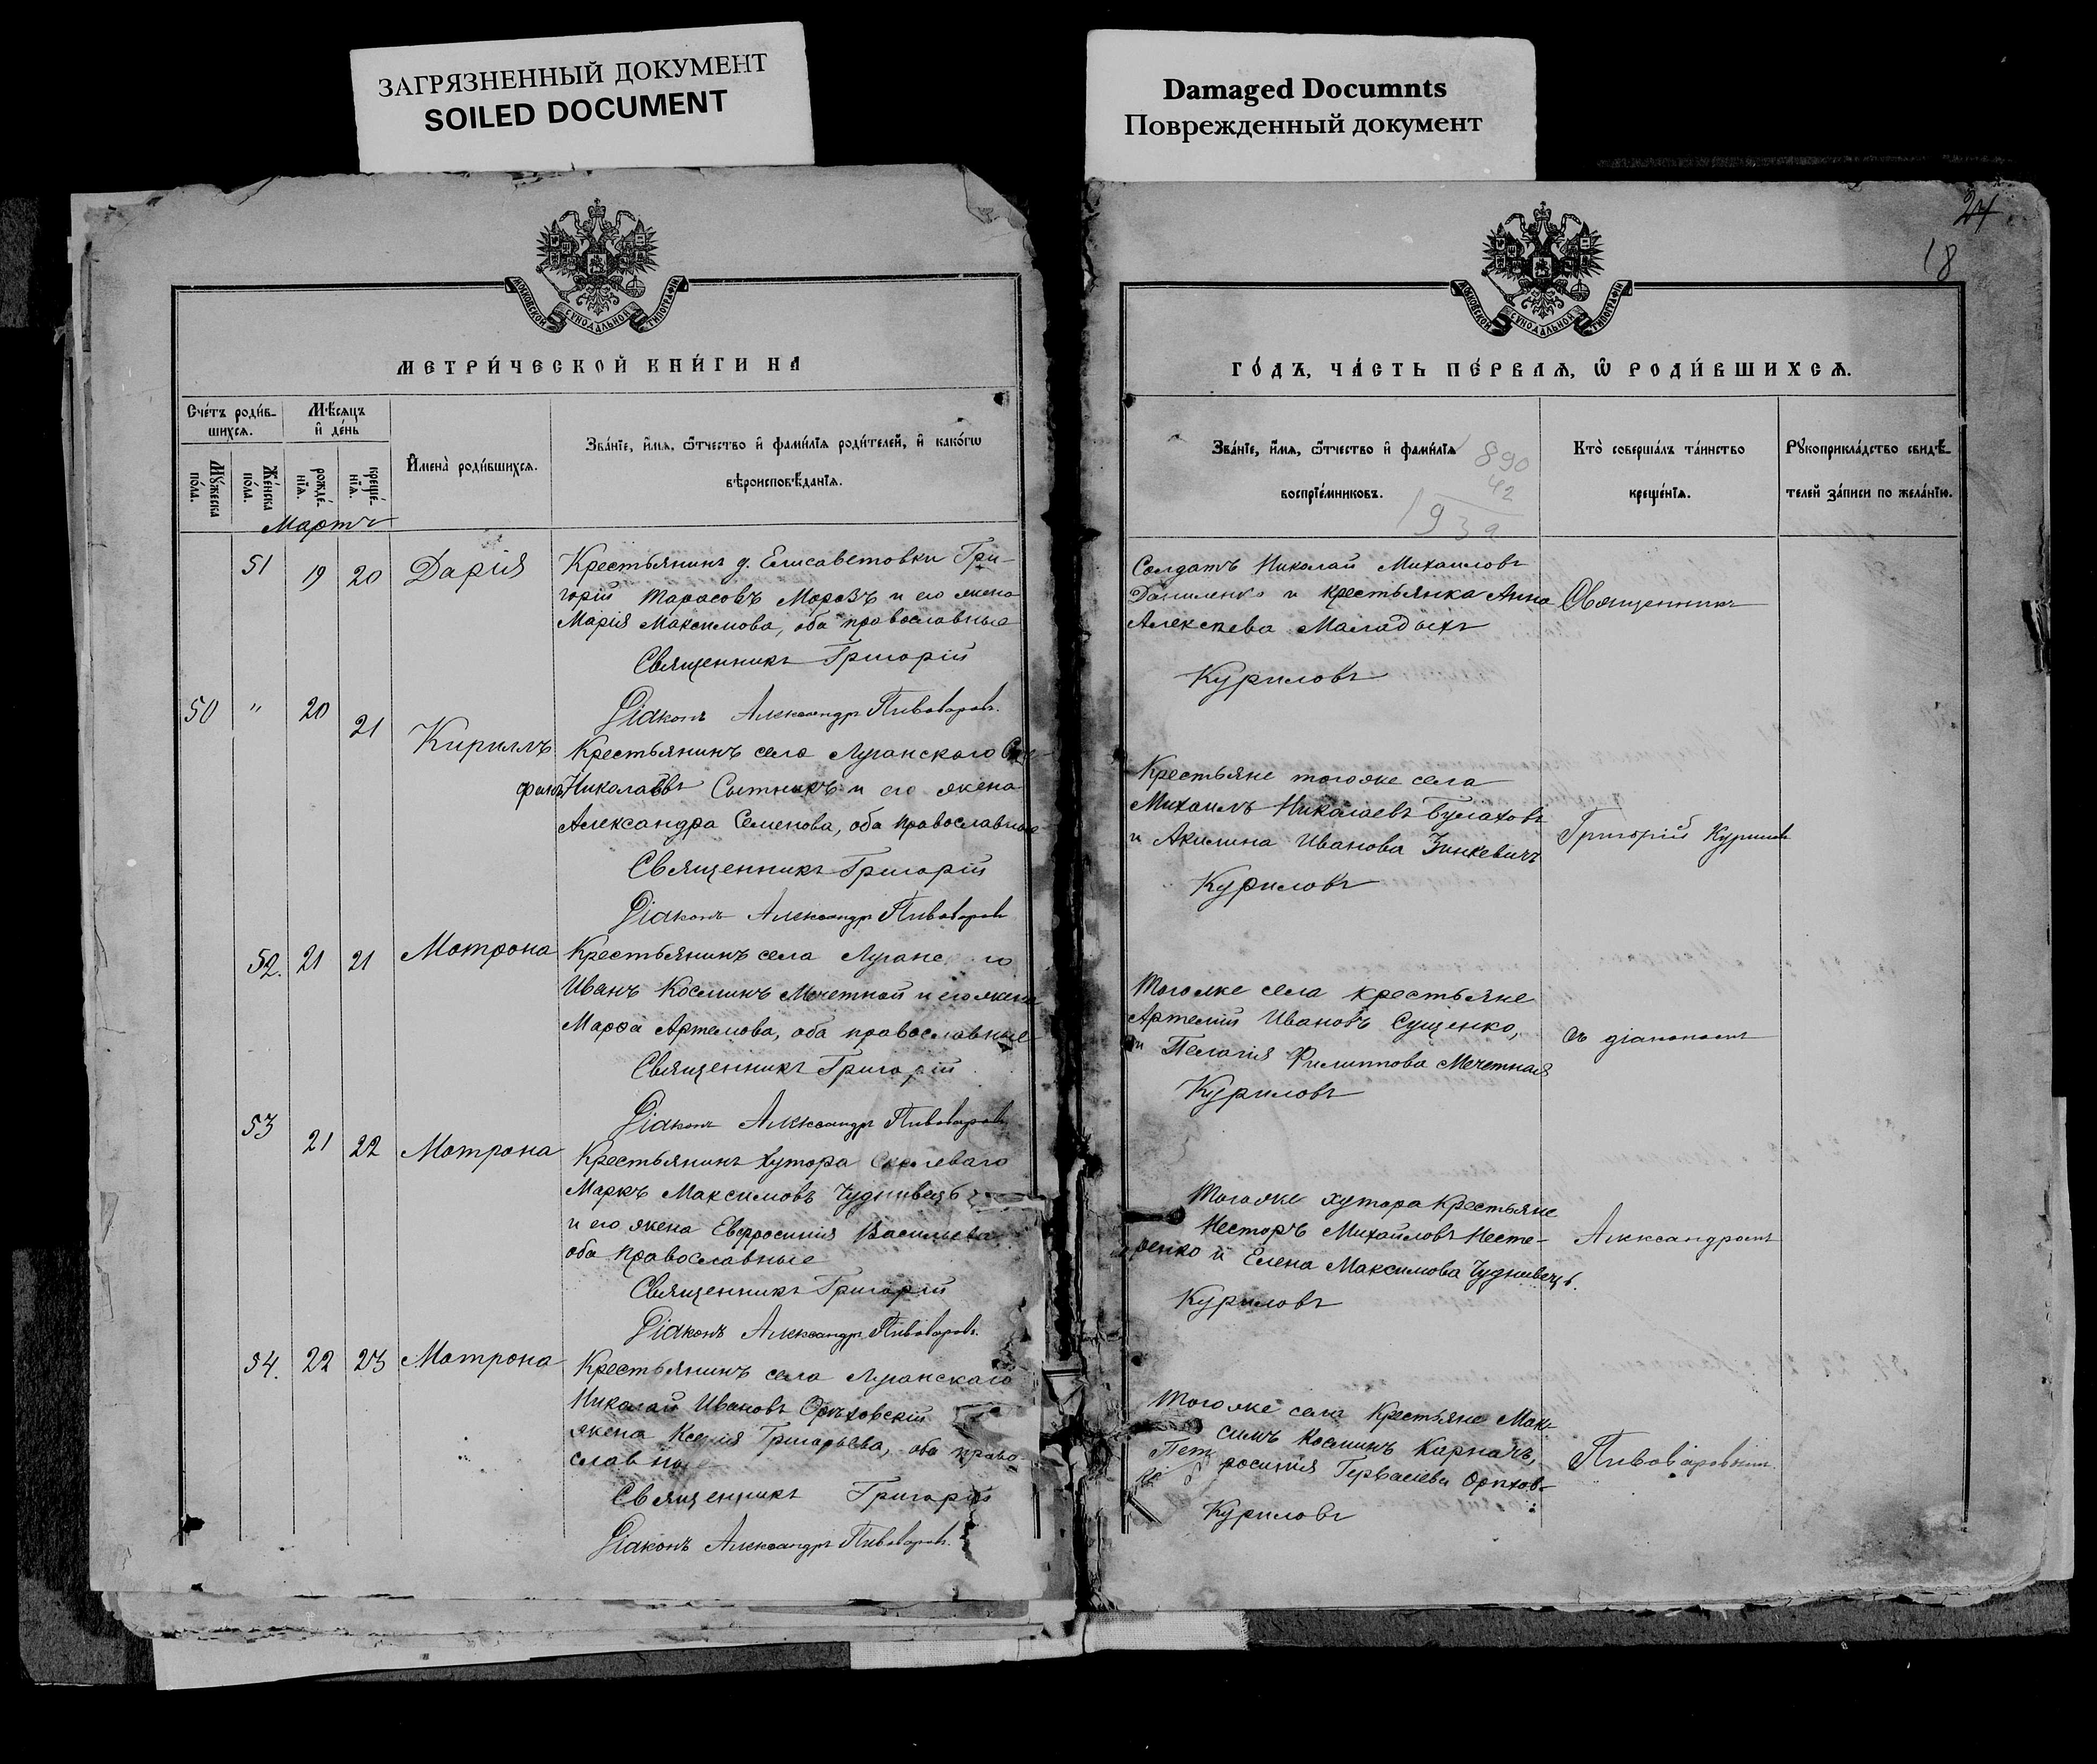 ЗАГРЯЗНЕННЫЙ ДОКУМЕНТ
SOILED DOCUMENT
Damaged Documnts
Поврежденный документ
24
18
МОСКОВСКОЙ СѴНОДАЛЬНОЙ ТИПОГРАФІИ
МЕТРИ́ЧЕСКОЙ КНИ́ГИ НА
Сче́тъ роди́в-
шихся.
Мѣ́сяцъ
и҆ де́нь
Мꙋ́жеска
по́ла.
Же́нска
по́ла.
рожде́-
нїѧ.
креще́-
нїѧ.
И҆мена̀ роди́вшихсѧ.
Зва́нїе, и҆́мѧ, ѻ҆́тчество и҆ фами́лїѧ роди́телей, и҆ како́гѡ
вѣроисповѣ́данїѧ.
Мартъ
51 19 20 Дарія
Крестьянинъ д. Елисаветовки Гри-
горій Тарасовъ Морозъ и его жена
Марія Максимова, оба православные
Священникъ Григорій
Діаконъ Александръ Пивоваровъ.
50 " 20 21 Кириллъ
Крестьянинъ села Луганскаго Сте-
фанъ Николаевъ Сытникъ и его жена
Александра Семенова, оба православные
Священникъ Григорій
Діаконъ Александръ Пивоваровъ
52. 21 21 Мотрона
Крестьянинъ села Луганс го
Иванъ Косминъ Мечетной и его жена
Марфа Артемова, оба православные
Священникъ Григорій
Діаконъ Александръ Пивоваровъ
53 21 22 Мотрона
Крестьянинъ хутора
Маркъ Максимовъ Чуднивецъ
и его жена Евфросинія Васильева
оба православные
Священникъ Григорій
Діаконъ Александръ Пивоваровъ.
54. 22 23 Мотрона
Крестьянинъ села Луганскаго
Николай Ивановъ Орѣховскій
жена Ксенія Григорьева, оба право-
славные
Священникъ Григорій
Діаконъ Александръ Пивоваровъ.
МОСКОВСКОЙ СѴНОДАЛЬНОЙ ТИПОГРАФІИ
ГО́ДЪ, ЧА́СТЬ ПЕ́РВАѦ, Ѡ҆ РОДИ́ВШИХСѦ.
Зва́нїе, и҆́мѧ, ѻ҆́тчество и҆ фами́лїѧ
воспрїе́мниковъ.
890
42
932
Кто̀ соверша́лъ та́инство
креще́нїѧ.
Рꙋкоприкла́дство свидѣ́-
телей за́писи по жела́нїю.
Солдатъ Николай Михаиловъ
Даниленко и крестьянка Анна
Алексѣева Маладыхъ
Куриловъ
Священникъ
Крестьяне того же села
Михаилъ Николаевъ Булаховъ
и Акилина Иванова Зинкевичъ
Куриловъ
Григорій Куриловъ
Того же села крестьяне
Артемій Ивановъ Сущенко,
и Пелагія Филиппова Мечетная
Куриловъ
съ діакономъ
Того же хутора крестьяне
Несторъ Михайловъ Несте-
ренко и Елена Максимова Чуднивецъ.
Куриловъ
Александромъ
Того же села крестьяне Мак-
симъ Косминъ Карначъ,
росинія Гервасіева Орѣхов-
Куриловъ
Пивоваровымъ.